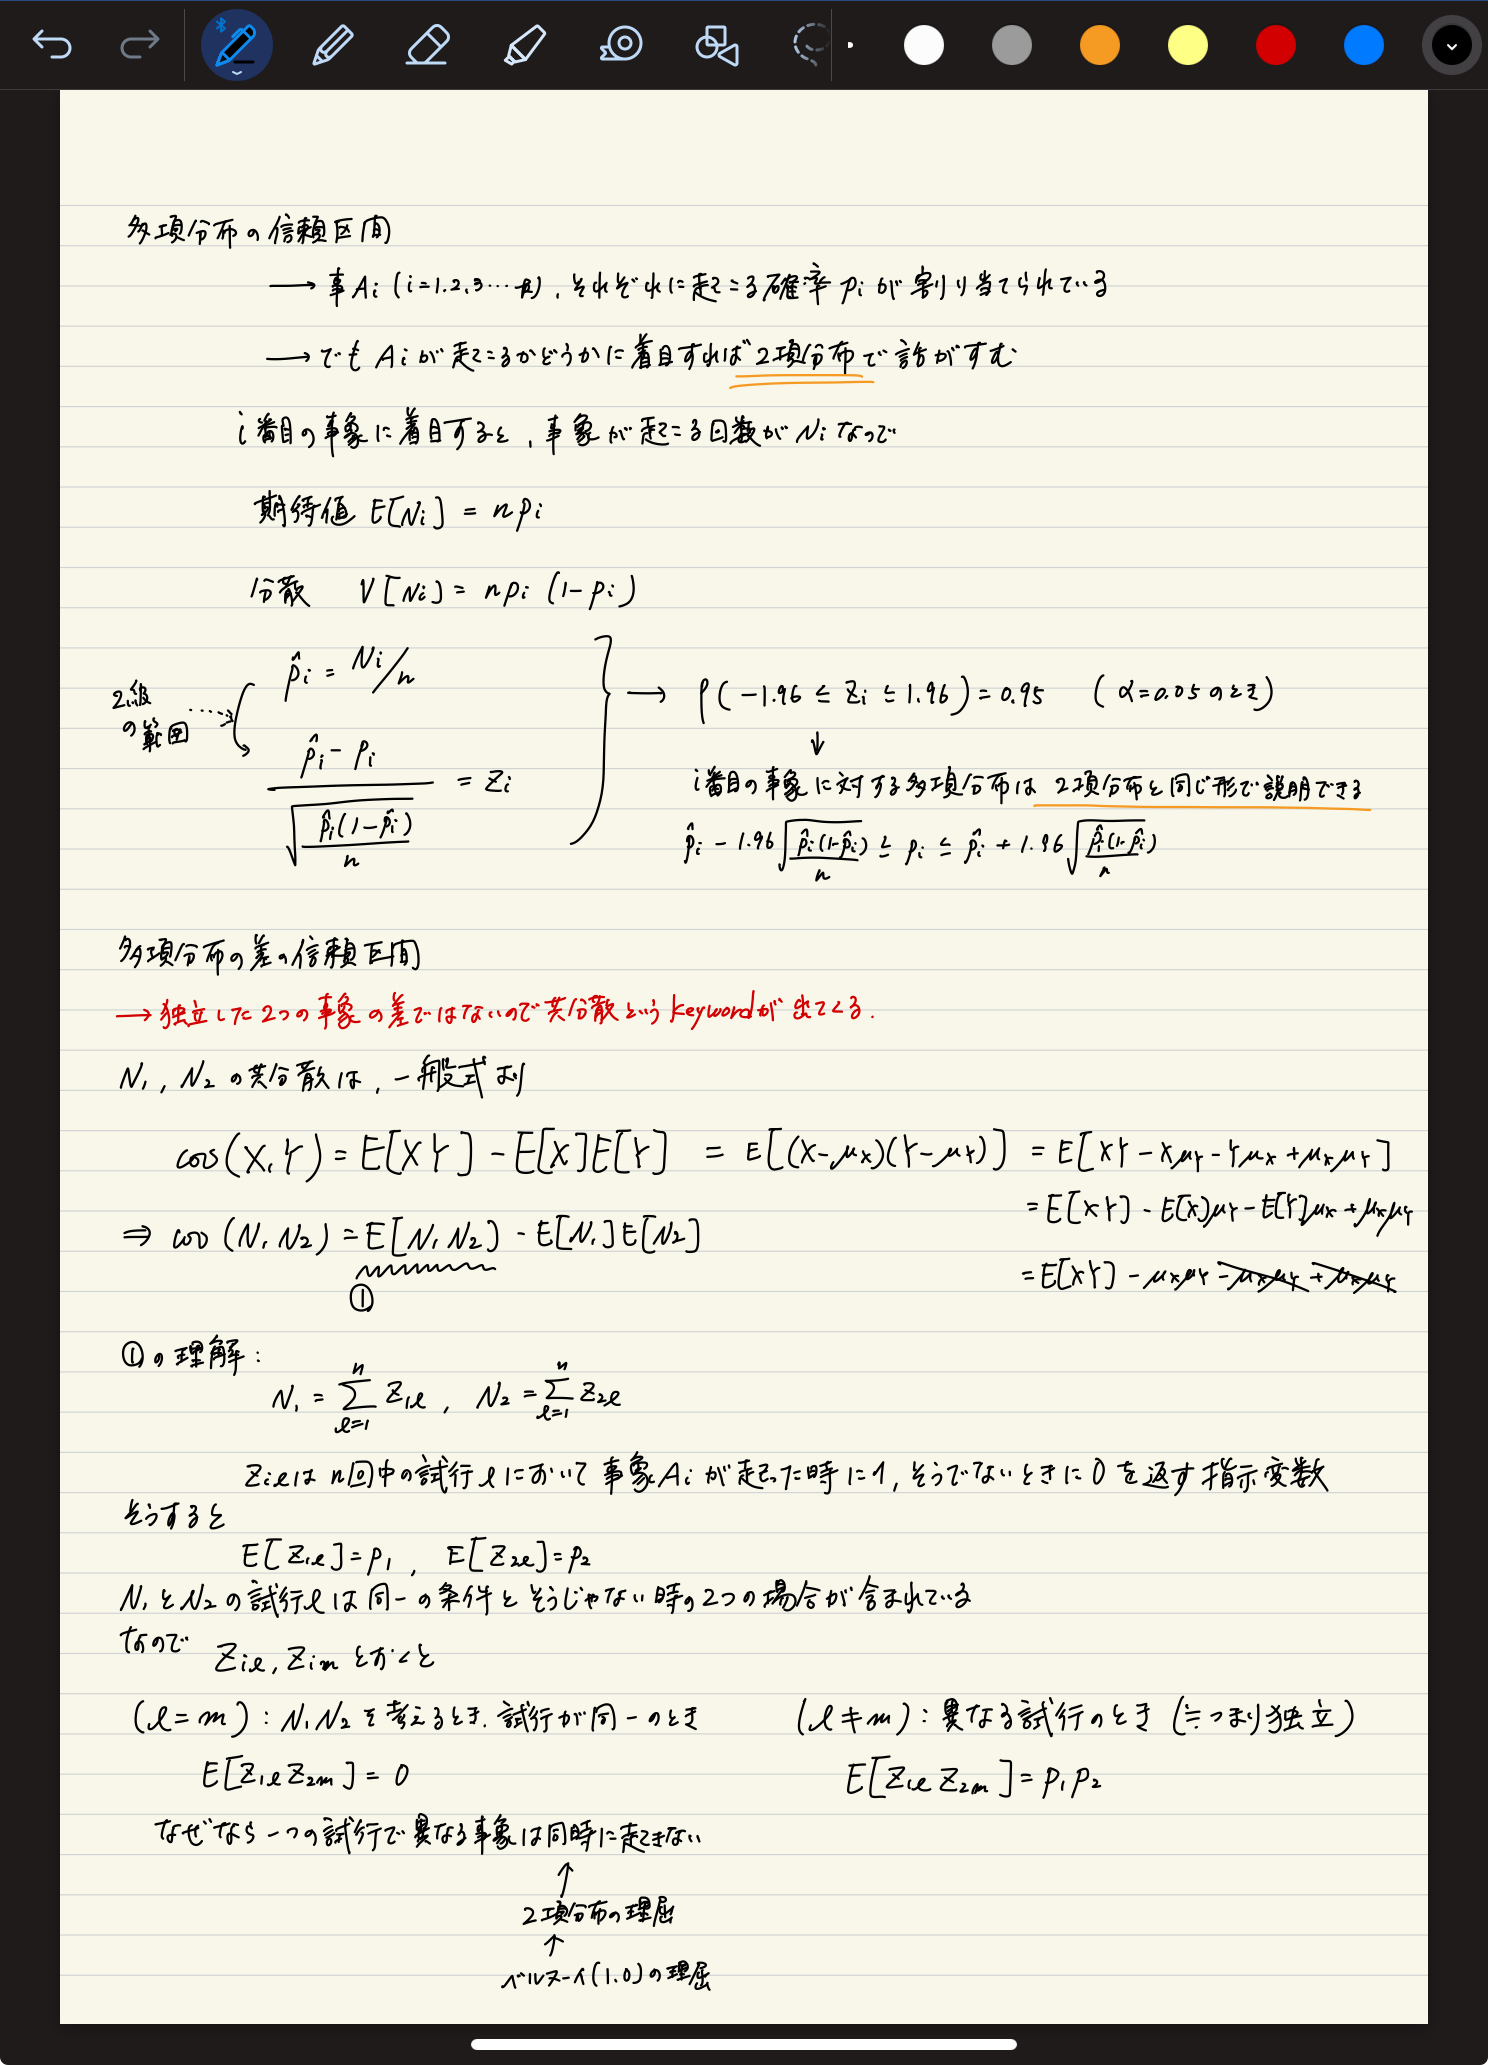 多項分布の信頼区間
→ 事Ai (i=1.2.3…k), それぞれに起こる確率 pi が割り当てられている
→ でも Ai が起こるかどうかに着目すれば 2項分布で話がすむ
i番目の事象に着目すると, 事象が起こる回数が Ni なので
期待値 E[Ni] = npi
分散 V[Ni] = npi (1-pi)
p̂i = Ni/n
2級の範囲
(p̂i - pi) / √(p̂i(1-p̂i)/n) = Zi
→ P(-1.96 ≦ Zi ≦ 1.96) = 0.95 (α=0.05のとき)
↓
i番目の事象に対する多項分布は 2項分布と同じ形で説明できる
p̂i - 1.96√(p̂i(1-p̂i)/n) ≦ pi ≦ p̂i + 1.96√(p̂i(1-p̂i)/n)
多項分布の差の信頼区間
→ 独立した2つの事象の差ではないので共分散というkeywordが出てくる.
N₁, N₂ の共分散は, 一般式より
cov(X,Y) = E[XY] - E[X]E[Y] = E[(X-μx)(Y-μY)] = E[XY - XμY - Yμx + μxμY]
= E[XY] - E[X]μY - E[Y]μx + μxμY
⇒ cov(N₁N₂) = E[N₁N₂] - E[N₁]E[N₂]
= E[XY] - μxμY - μxμY + μxμY
①
①の理解:
N₁ = Σ_{ℓ=1}^{n} Z₁ℓ, N₂ = Σ_{ℓ=1}^{n} Z₂ℓ
Ziℓは n回中の試行ℓにおいて 事象Ai が起こった時に1, そうでないときに 0 を返す指示変数
そうすると
E[Z₁ℓ] = p₁, E[Z₂ℓ] = p₂
N₁とN₂の試行ℓは同一の条件とそうじゃない時の2つの場合が含まれている
なので Ziℓ, Zim とおくと
(ℓ=m): N₁N₂ を考えるとき. 試行が同一のとき
(ℓ≠m): 異なる試行のとき (≒つまり独立)
E[Z₁ℓZ₂m] = 0
E[Z₁ℓZ₂m] = p₁p₂
なぜなら一つの試行で異なる事象は同時に起きない
↑
2項分布の理屈
↑
ベルヌーイ(1.0)の理屈